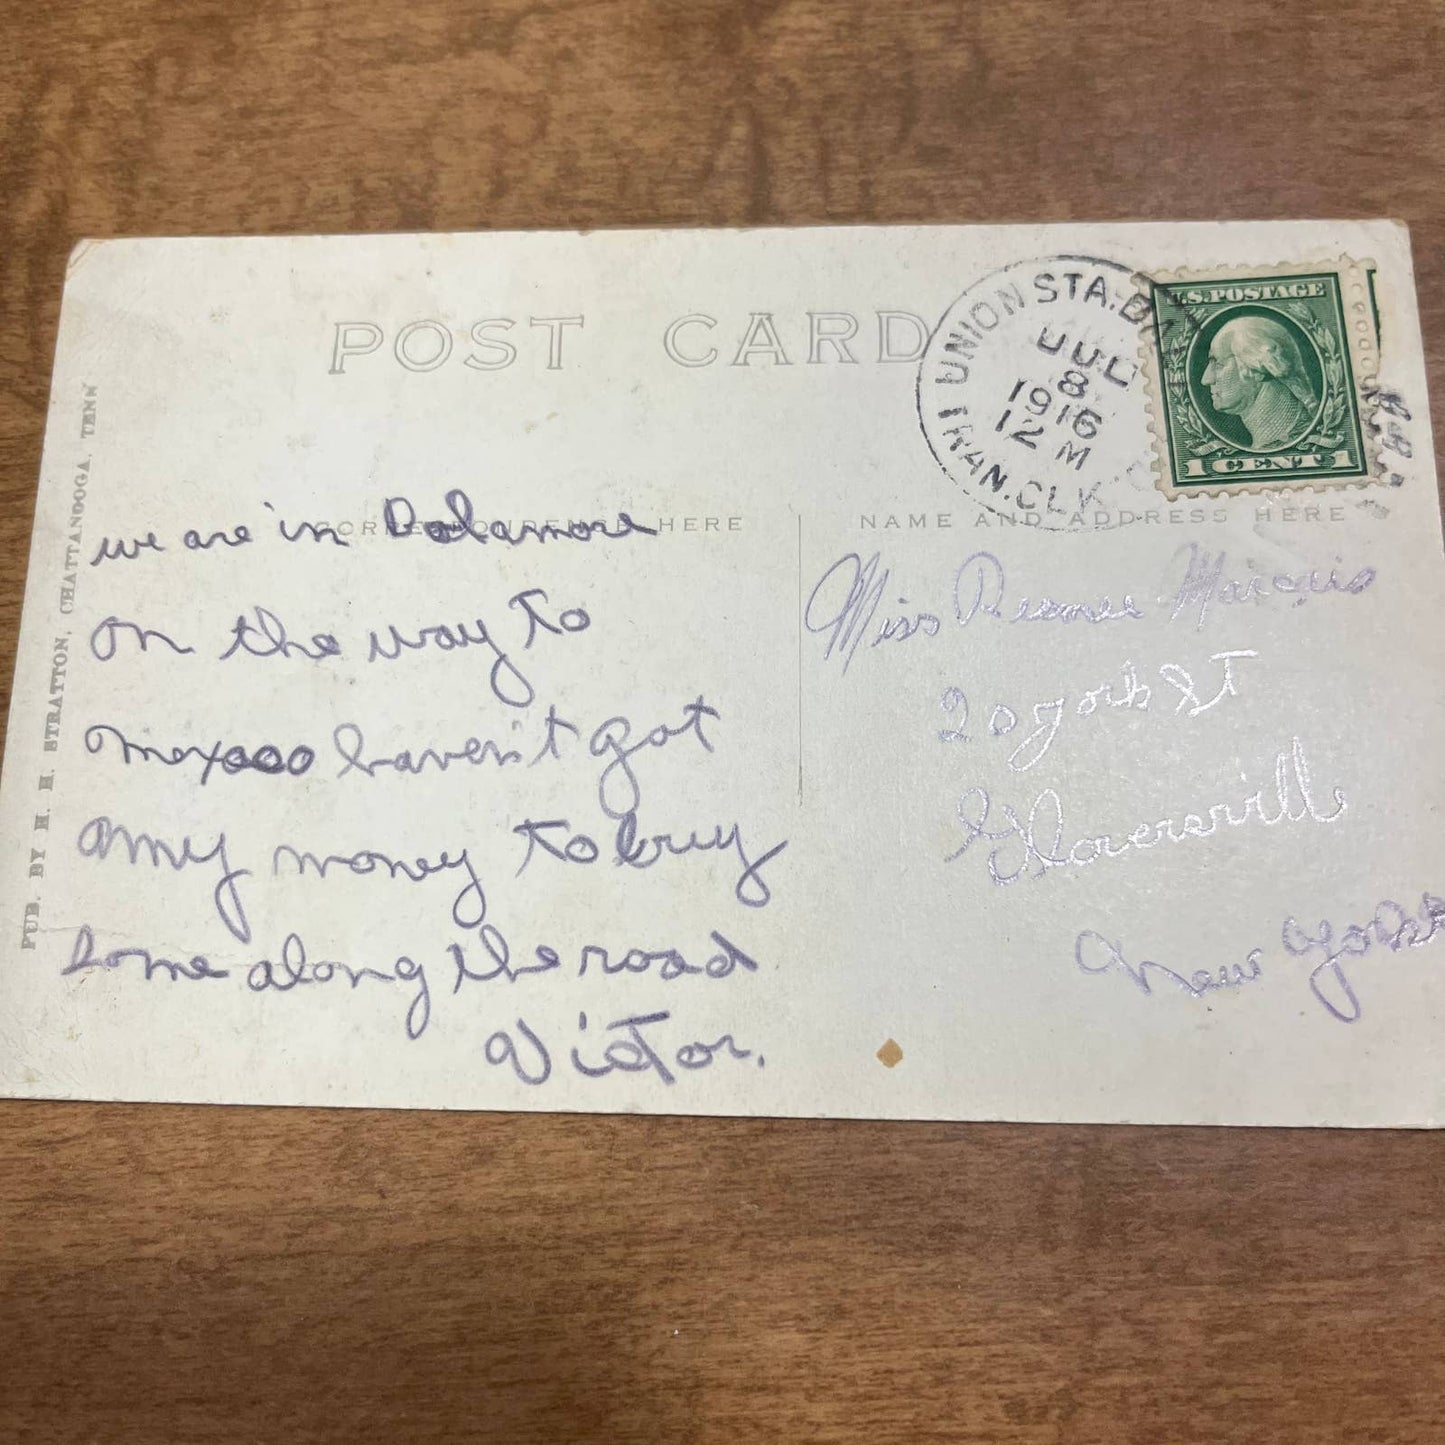 POST CARD
UNION STA. BA
JUL
8
1916
12 M
TRAN. CLK.
U.S. POSTAGE
1 CENT 1
PUB. BY H. H. STRATTON, CHATTANOOGA, TENN
CORRESPONDENCE HERE
we are in Dolamore
on the way to
mexaco haven't got
amy money to buy
some along the road
Victor.
NAME AND ADDRESS HERE
Miss Marquis
20 york ST
Gloversville
New York